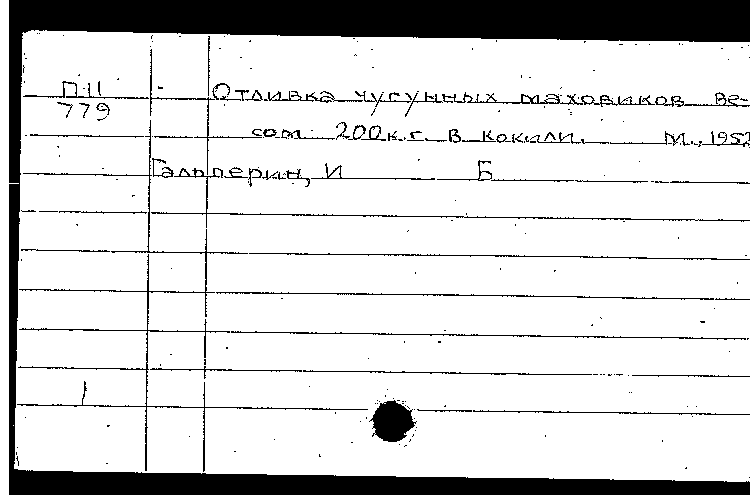 П-11 - Отливка чугунных маховиков ве-
779
сом 200кг. в кокили. М., 1952
Гальперин, И Б
1